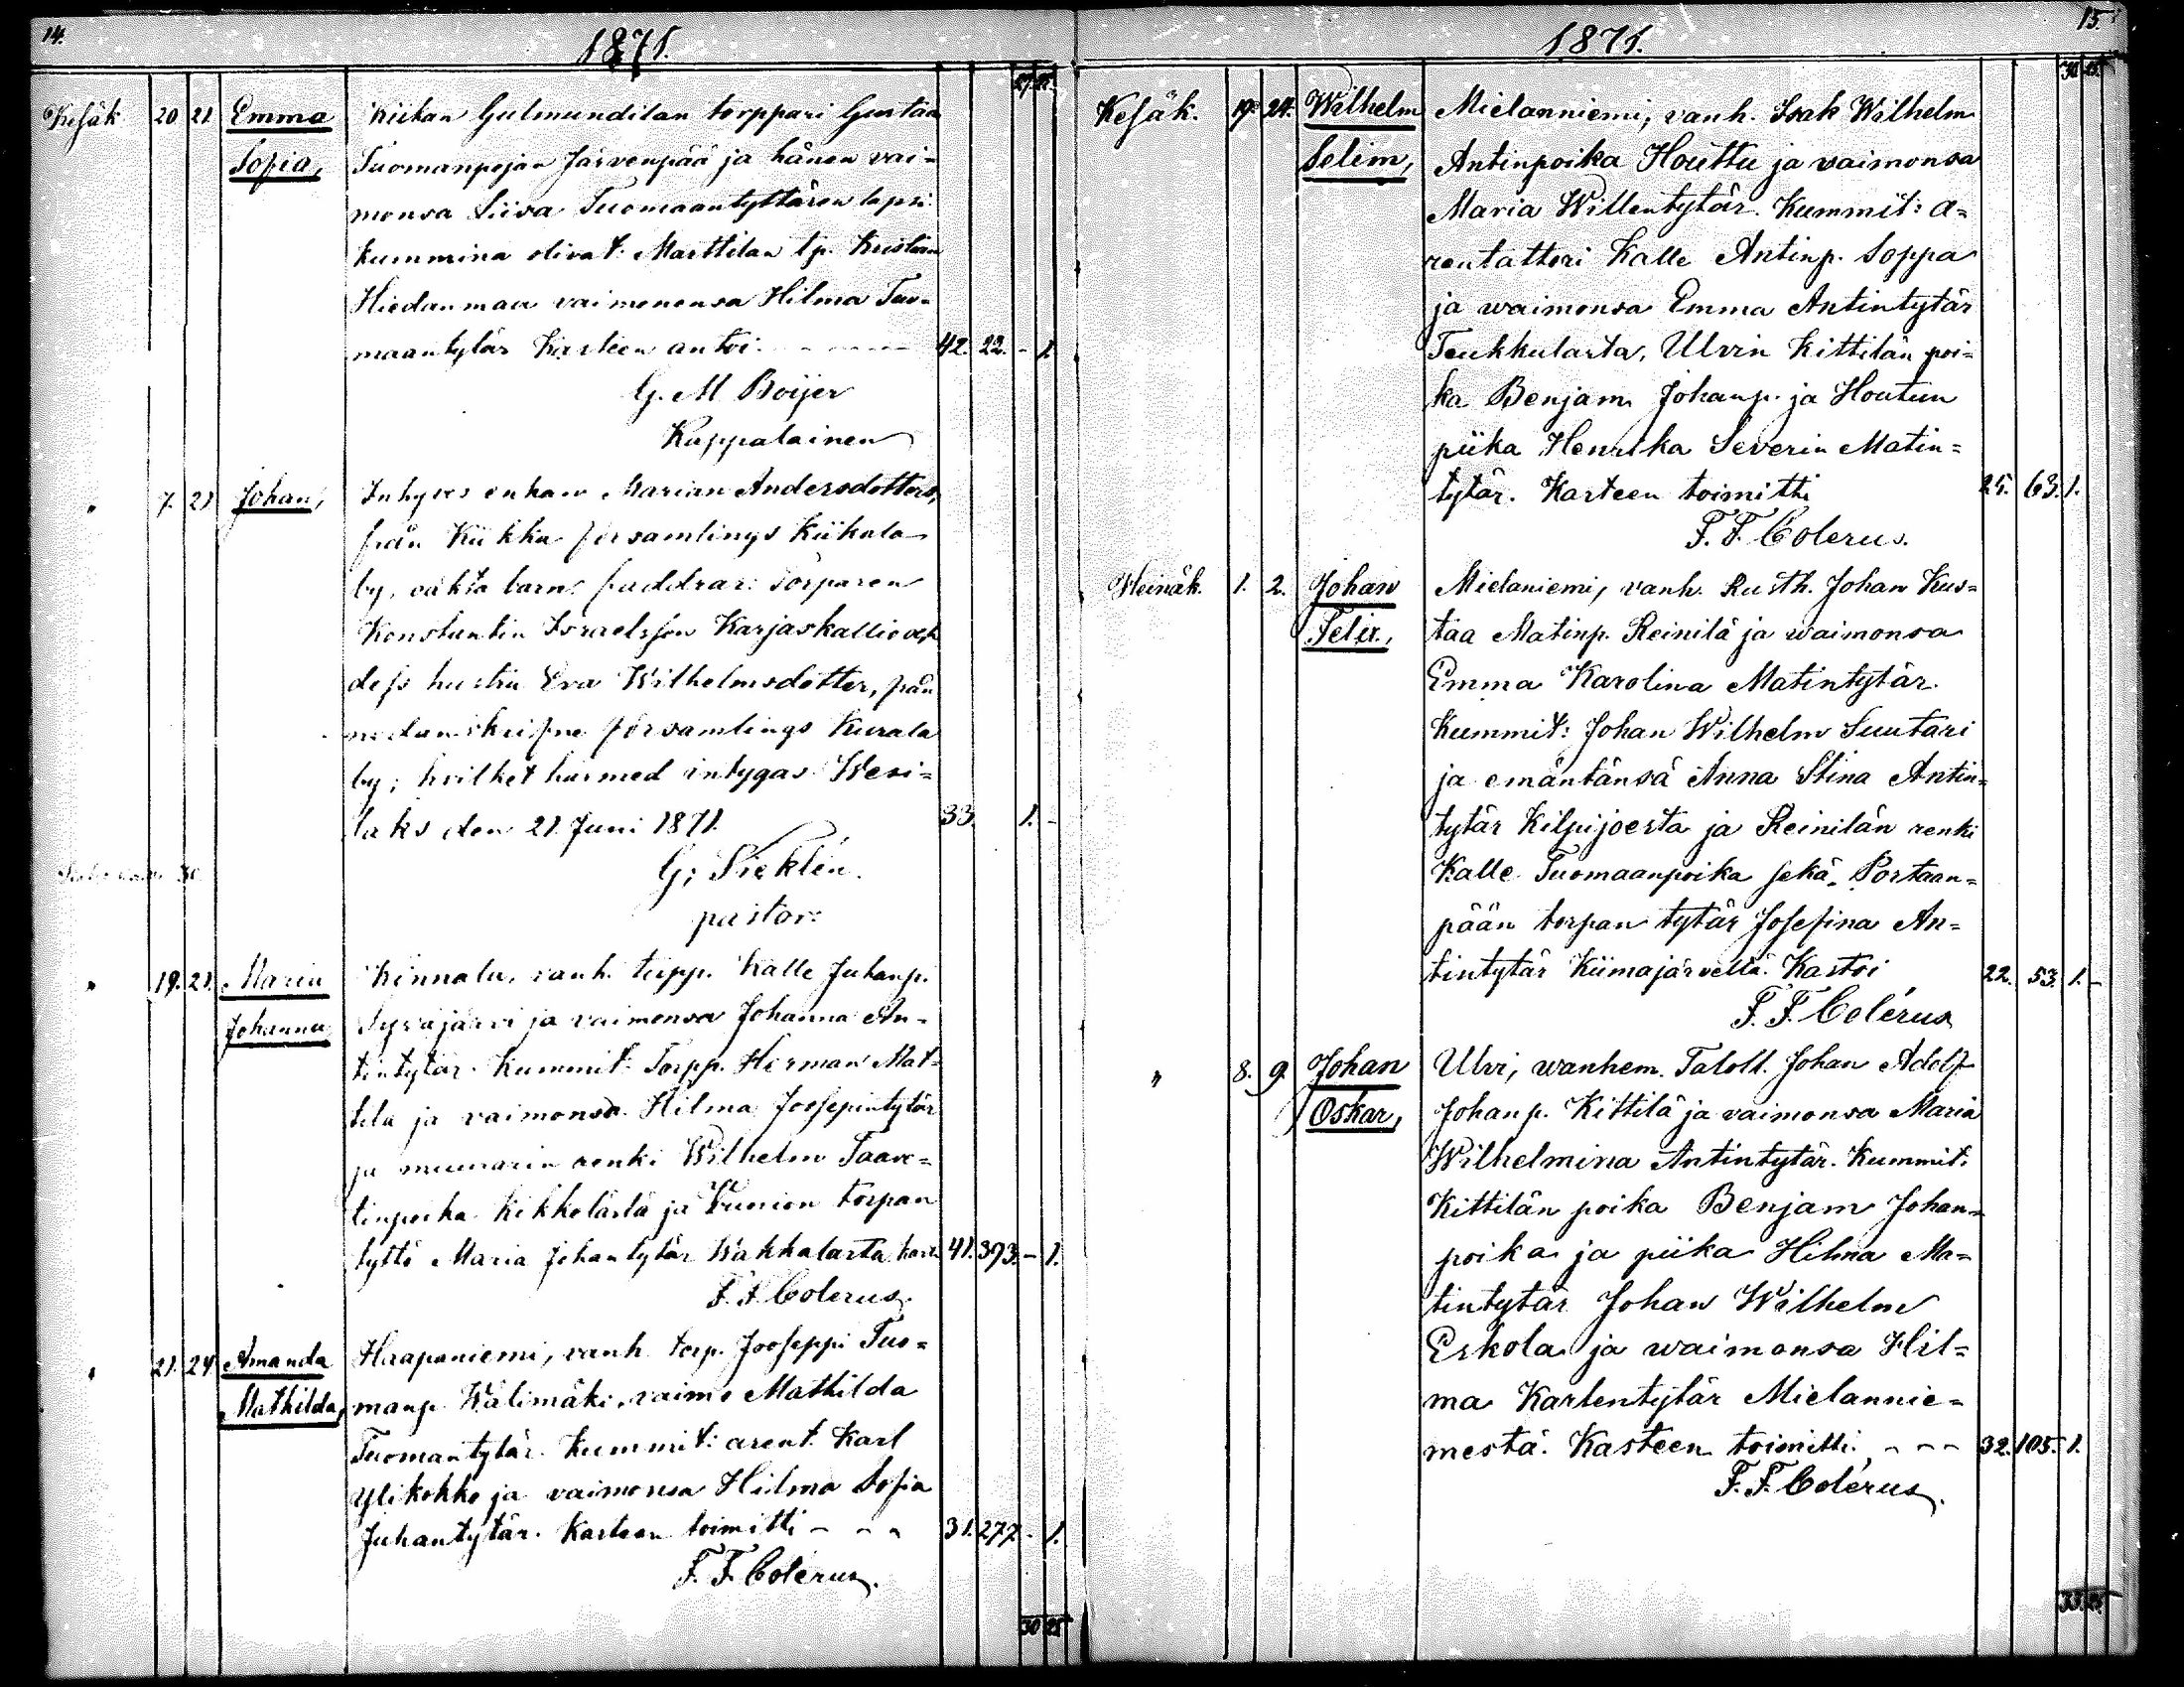 14.
1871.
27. 25.
Kesäk 20 21 Emma Kiikan Gulmundilan torppari Gustaa
Sofia, Tuomanpojan Järvenpää ja hänen vai-
monsa Liisa Tuomaantyttären lapsi
kummina olivat: Marttilan tp. Kristian
Hiedanmaa vaimonensa Hilma Tuo-
maantytär Kasteen antoi. - - - - 42. 22. - 1.
G. M Boijer
Kappalainen
" 7. 21 Johan, Inhyses enkan Marian Andersdotters,
från Kiikka församlings Kiikala
by, oäkta barn: faddrar: Torparen
Konstantin Israelsson Karjaskallio och
dess hustru Eva Wilhelmsdotter, från
församlings Kurala
by; hvilket härmed intygas. Wesi-
laks den 21. Juni 1871. 33. 1. -
G; Siklén.
pastor:
" 19. 21. Maria Kinnala, vanh. torpp. Kalle Juhanp.
Johanna Syväjärvi ja vaimonsa Johanna An-
tintytär. Kummit: Torpp. Herman Mat-
tila ja vaimonsa Hilma Joosepintytär
ja muurarin renki Wilhelm Taave-
tinpoika Kikkolasta ja torpan
tyttö Maria Johantytär Wakkalasta kast. 41. 393. - 1.
F. F. Colerus.
" 21. 24 Amanda Haapaniemi, vanh torp. Jooseppi Tuo-
Mathilda, manp Wälimäki, vaimo Mathilda
Tuomantytär. Kummit: arent. Karl
Ylikokko ja vaimonsa Hilma Sofia
Juhantytär. Kasteen toimitti - - - 31. 277. - 1.
F. F. Colérus.
30 25
15.
1871.
30 25.
Kesäk. 19. 24. Wilhelm Mielanniemi, vanh. Isak Wilhelm
Selim, Antinpoika Houttu ja vaimonsa
Maria Willentytär. Kummit: a-
rentattori Kalle Antinp. Soppa
ja waimonsa Emma Antintytär
Teukkulasta, Ulvin Kittilän poi-
ka Benjam Johanp. ja Houtun
piika Henrika Severin Matin-
tytär. Kasteen toimitti 25. 63. 1.
F. F. Colerus.
Heinäk. 1. 2. Johan Mielaniemi, vanh. Rusth. Johan Kus-
Felix, taa Matinp. Reinilä ja waimonsa
Emma Karolina Matintytär.
Kummit: Johan Wilhelm Suutari
ja emäntänsä Anna Stina Antin-
tytär Kilpijoesta ja Reinilän renki
Kalle Tuomaanpoika sekä Portaan-
pään torpan tytär Josefina An-
tintytär Kiimajärveltä. Kastoi 22. 53. 1. -
F. F. Colérus
" 8. 9. Johan Ulvi, wanhem. Taloll. Johan Adolf
Oskar, Johanp. Kittilä ja vaimonsa Maria
Wilhelmina Antintytär. Kummit:
Kittilän poika Benjam Johan-
poika ja piika Hilma Ma-
tintytär Johan Wilhelm
Eskola ja waimonsa Hil-
ma Karlentytär Mielannie-
mestä. Kasteen toimitti. - - - 32. 105. 1.
F. F. Colérus.
33. 25.